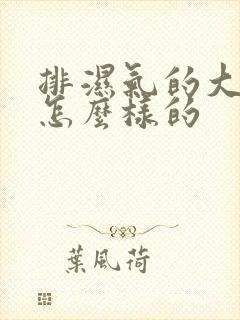 排濕氣的大
怎麼樣的
葉風荷